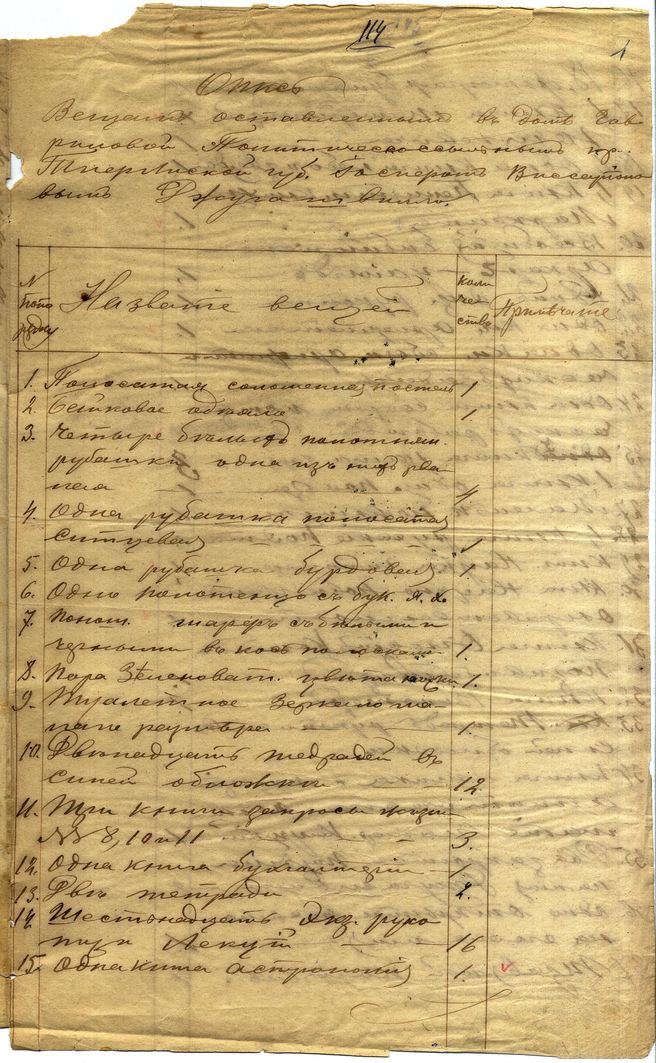 114
1
Опись
Вещамъ оставленнымъ въ Домѣ Гав
риловой Политическоссыльнымъ кр.
Тифлиской губ. Iосифомъ Виссарiоно
вымъ Джугашвилли.
N попо рядку
Названiе вещей
Коли че- ство
Примѣчанiе
1. Полосатая соломенная постель 1
2. Байковое одѣяло 1
3. Четыре бѣлыхъ полотнян.
рубашки одна изъ нихъ рва
ная — 4
4. Одна рубашка полосатая
ситцевая 1
5. Одна рубашка бурдовая 1.
6. Одно полотенцо съ бук. Я. Х.
7. Полот. шарфъ съ бѣлыми и
черными въ кось полосками 1.
8. Пара Зеленоват. цвѣта 1.
9. Туалетное Зеркало ма-
лаго размѣра 1.
10. Двѣнадцать тедрадей въ
синей обложки 12.
11. Три книги запросы жизни
№№ 8, 10 и 11 3.
12. Одна книга бухгалтерiи 1
13. Двѣ тетради 2.
14. Шестьнадцать Экз. руко
писи Лекцiй 16
15. Одна кнiга астрономiя 1.